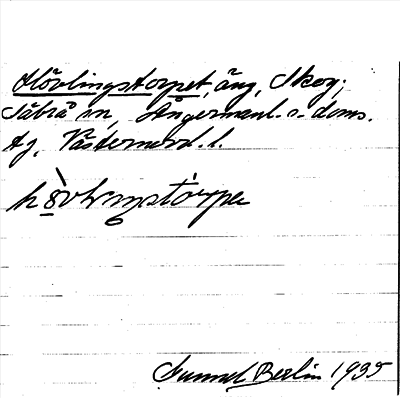 Hövlingstorpet, äng, Skog;
Säbrå sn, Ångermanl. s. doms.
tg, Västernorrl. l.
hövlıŋstórpe
Gunnel Berlin 1935